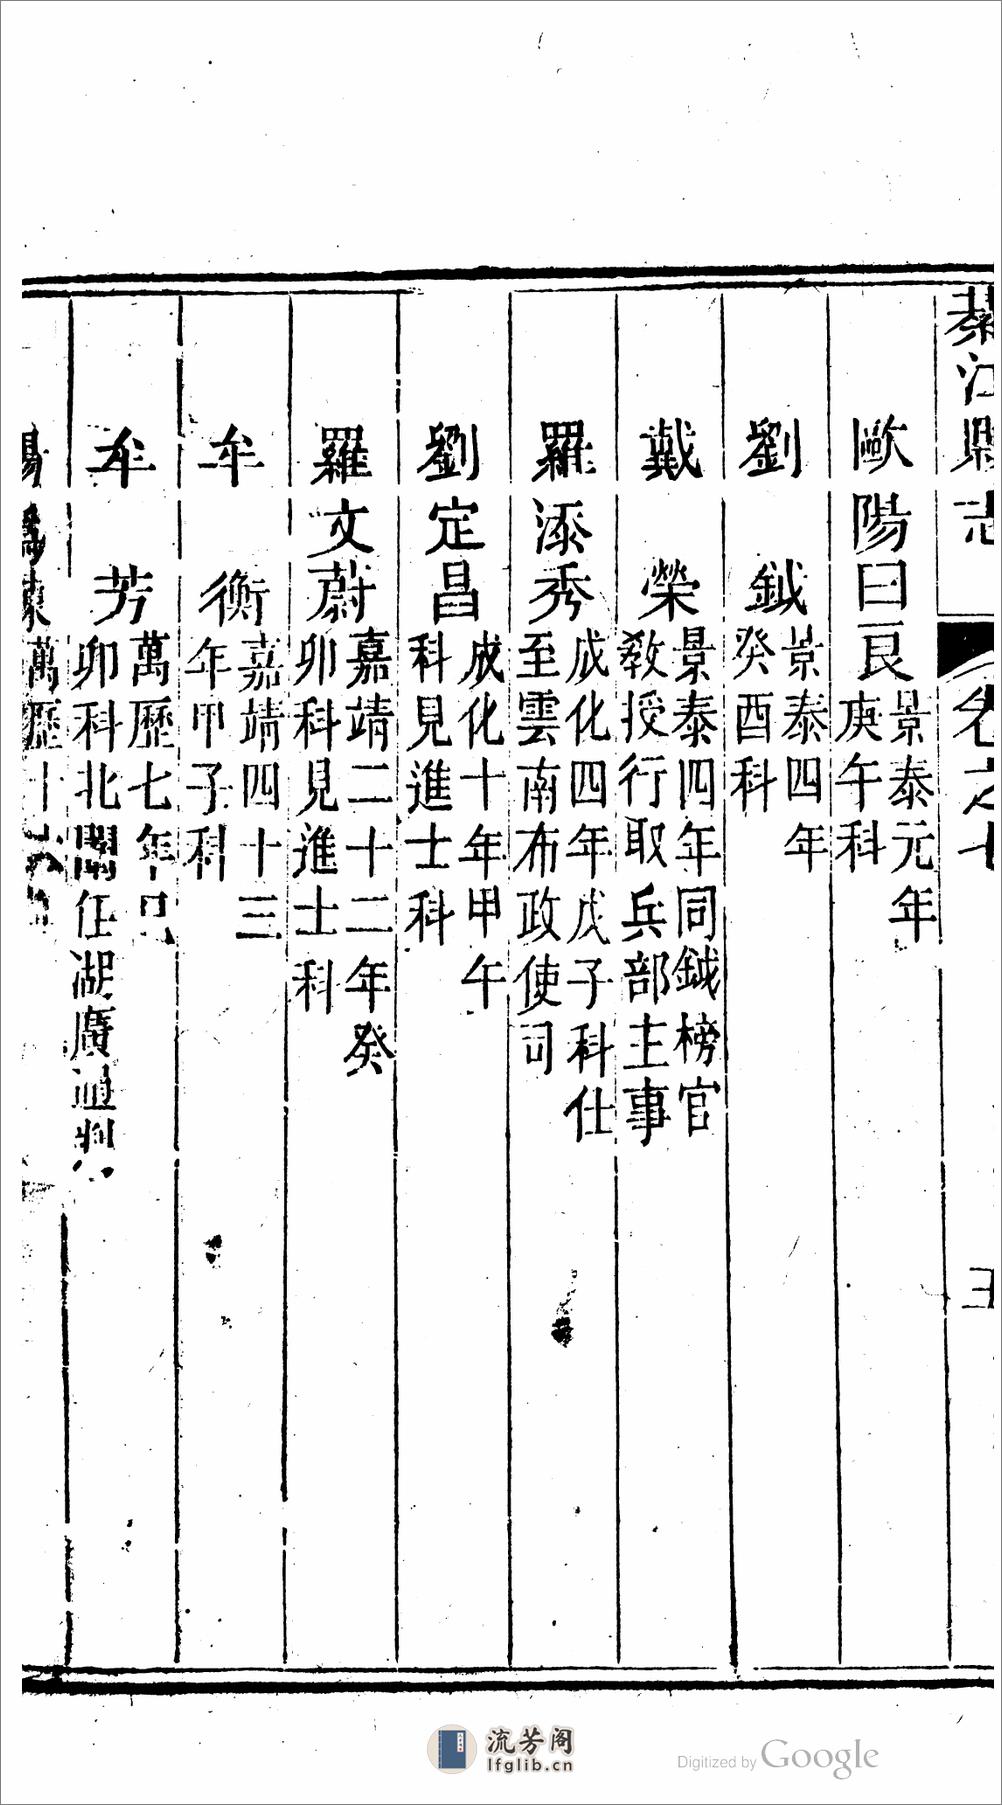 綦江縣志
卷之七
歐陽曰良 景泰元年
庚午科
劉 鉞 景泰四年
癸酉科
戴 榮 景泰四年同鉞榜官
教授行取兵部主事
羅添秀 成化四年戊子科仕
至雲南布政使司
劉定昌 成化十年甲午
科見進士科
羅文蔚 嘉靖二十二年癸
卯科見進士科
牟 衡 嘉靖四十三
年甲子科
牟 芳 萬歷七年己
卯科北闈任湖廣通判
楊 萬歷十
流芳阁
lfglib.cn
Digitized by Google